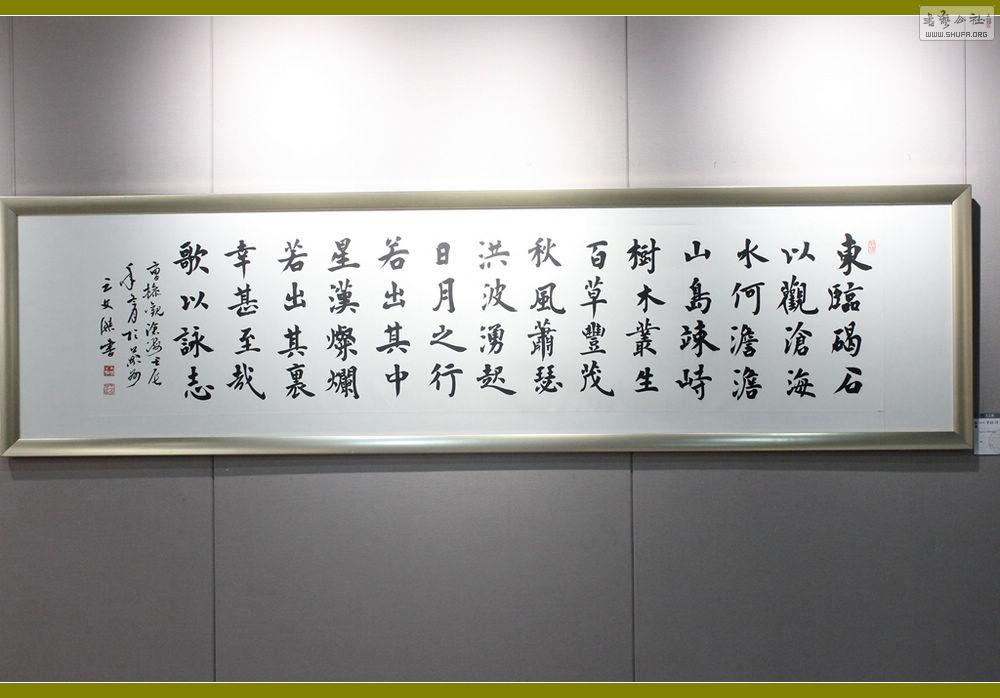 東臨碣石
以觀滄海
水何澹澹
山島竦峙
樹木叢生
百草豐茂
秋風蕭瑟
洪波湧起
日月之行
若出其中
星漢燦爛
若出其裏
幸甚至哉
歌以詠志
曹操觀滄海
書
书艺公社
WWW.SHUFA.ORG